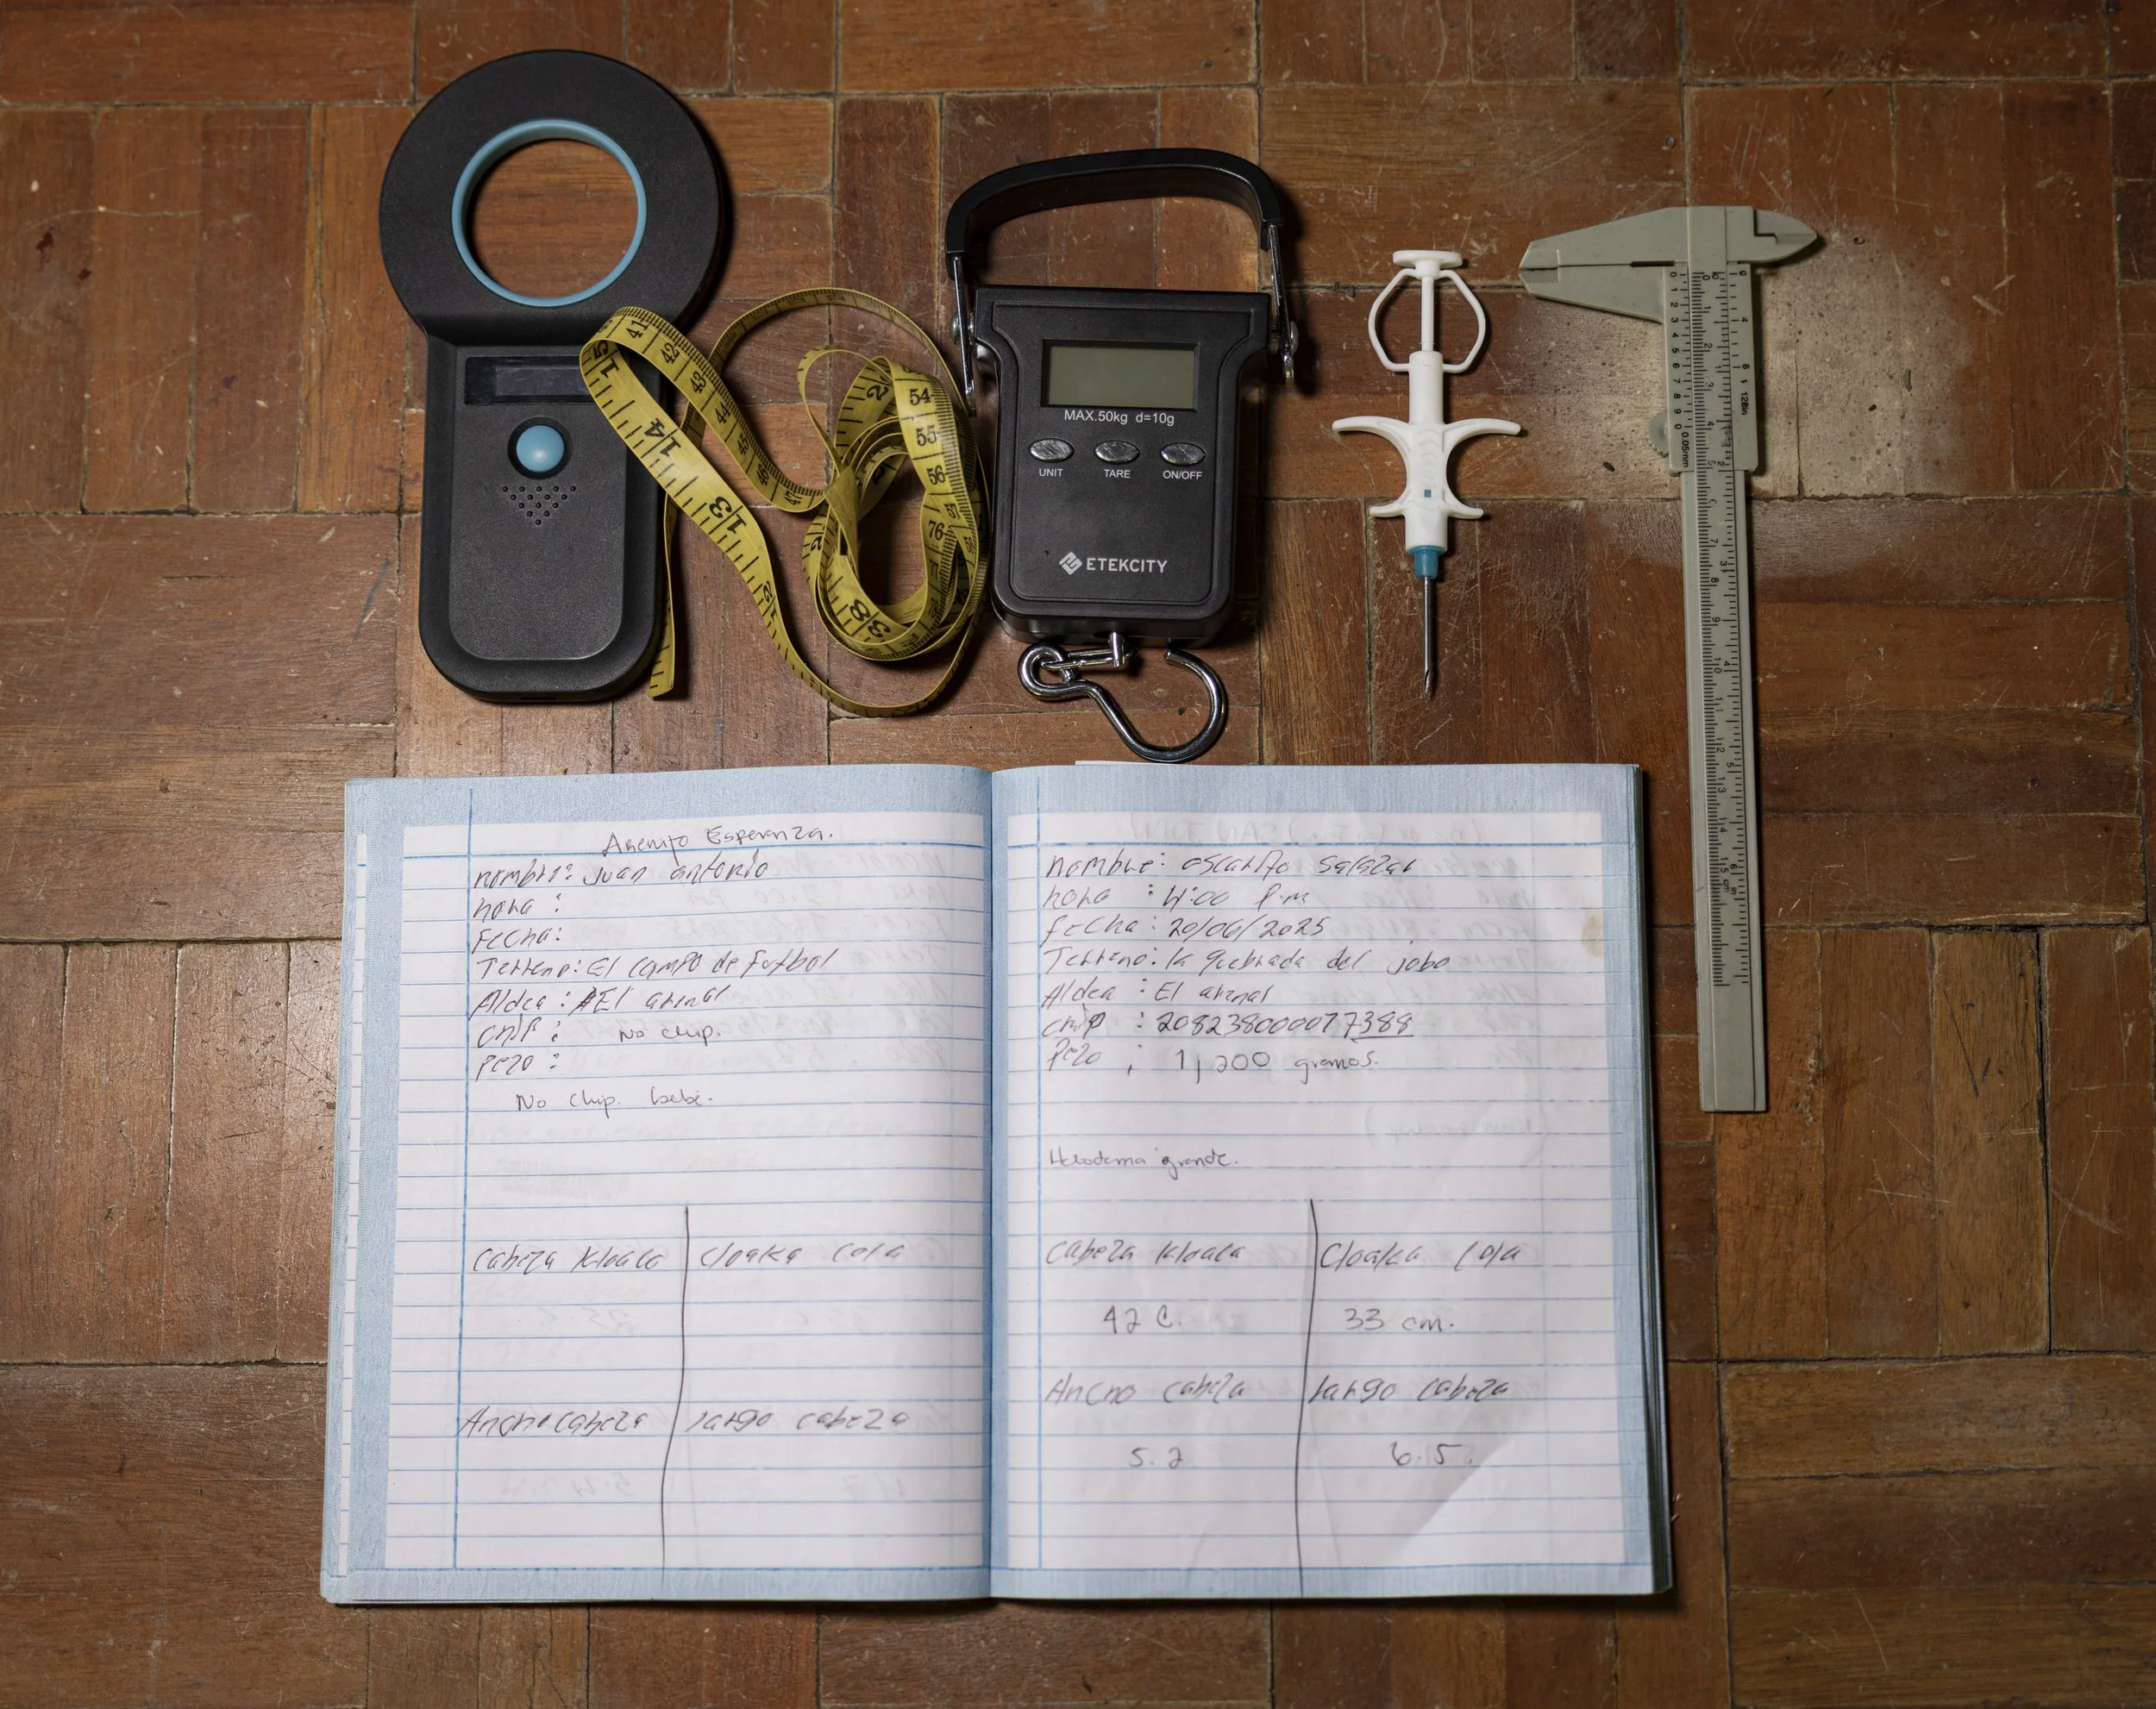 MAX.50kg d=10g
UNIT TARE ON/OFF
ETEKCITY
15
14
13
41
42
43
44
45
46
47
54
55
56
76
38
0.05mm
1/128in
Arenito Esperanza.
nombre: Juan antonio
hora :
Fecha:
Terreno: El campo de futbol
Aldea : El arenal
chip : No chip.
pezo :
No chip. bebe.
Cabeza kloaca
cloaka cola
Ancho cabeza
largo cabeza
nombre: oscarito salazar
hora : 4:00 P.m
fecha : 20/06/2025
Terreno: la quebrada del jobo
Aldea : El arenal
chip : 208238000077388
Pezo : 1,200 gramos.
Heloderma grande.
Cabeza kloaca
Cloaka cola
42 C.
33 cm.
Ancho cabeza
largo cabeza
5.2
6.5.